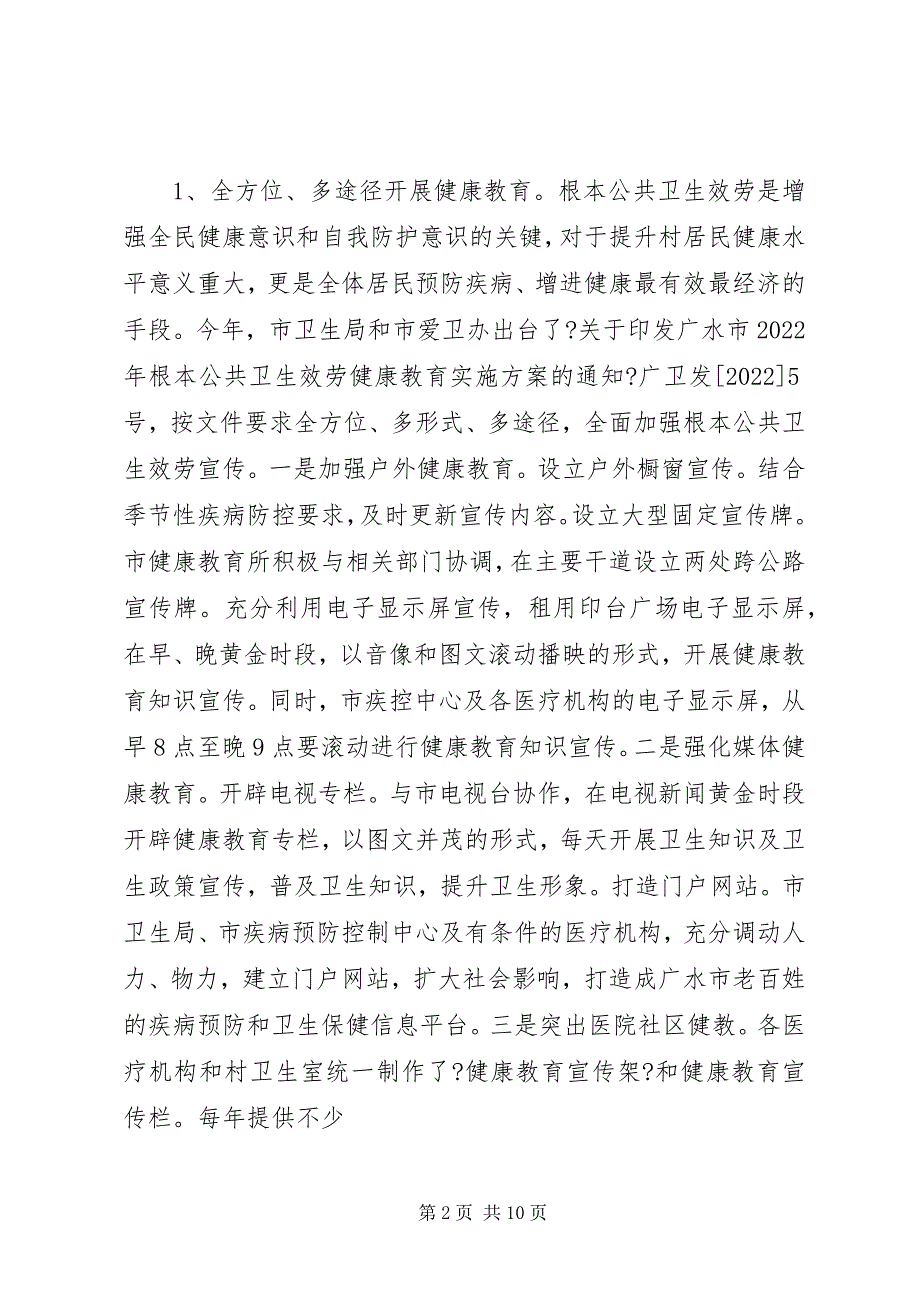 1、全方位、多途径开展健康教育。根本公共卫生效劳是增
强全民健康意识和自我防护意识的关键,对于提升村居民健康水
平意义重大，更是全体居民预防疾病、增进健康最有效最经济的
手段。今年，市卫生局和市爱卫办出台了?关于印发广水市 2022
年根本公共卫生效劳健康教育实施方案的通知?广卫发[2022]5
号，按文件要求全方位、多形式、多途径，全面加强根本公共卫
生效劳宣传。一是加强户外健康教育。设立户外橱窗宣传。结合
季节性疾病防控要求,及时更新宣传内容。设立大型固定宣传牌。
市健康教育所积极与相关部门协调,在主要干道设立两处跨公路
宣传牌。充分利用电子显示屏宣传，租用印台广场电子显示屏,
在早、晚黄金时段，以音像和图文滚动播映的形式，开展健康教
育知识宣传。同时，市疾控中心及各医疗机构的电子显示屏，从
早 8 点至晚 9 点要滚动进行健康教育知识宣传。二是强化媒体健
康教育。开辟电视专栏。与市电视台协作，在电视新闻黄金时段
开辟健康教育专栏，以图文并茂的形式，每天开展卫生知识及卫
生政策宣传，普及卫生知识，提升卫生形象。打造门户网站。市
卫生局、市疾病预防控制中心及有条件的医疗机构，充分调动人
力、物力，建立门户网站，扩大社会影响，打造成广水市老百姓
的疾病预防和卫生保健信息平台。三是突出医院社区健教。各医
疗机构和村卫生室统一制作了?健康教育宣传架?和健康教育宣
传栏。每年提供不少
第 2 页 共 10 页